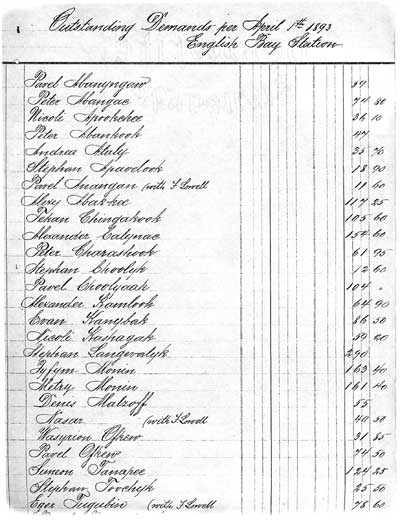 Outstanding Demands per April 1st 1893
English Bay Station
Pavel 59
Peter Abangac 74 80
Nicoli Apookchee 36 10
Peter Abankook 47
Andrea Ataly 25 76
Stephan Apavdook 18 90
Pavel Anangan (with F Lowell 11 60
Alexy 117 25
Tekan Chingakook 105 60
Alexander 154 60
Peter Charashook 61 95
Stephan Choolyk 12 60
Pavel Choolyoak 104 "
Alexander Kamlook 64 90
Evan Kanybak 86 50
Nicoli Kashagak 59 20
Stephan Langwalyk 290
Monin 163 40
Mitry Monin 161 40
Denis Malzoff 55
Nasar (with F Lowell 40 50
Ofrew 31 85
Pavel Ofrew 74 50
Simeon Tanapee 124 25
Stephan Tovchyk 25 50
Eger Tugubin (with F Lowell 78 60